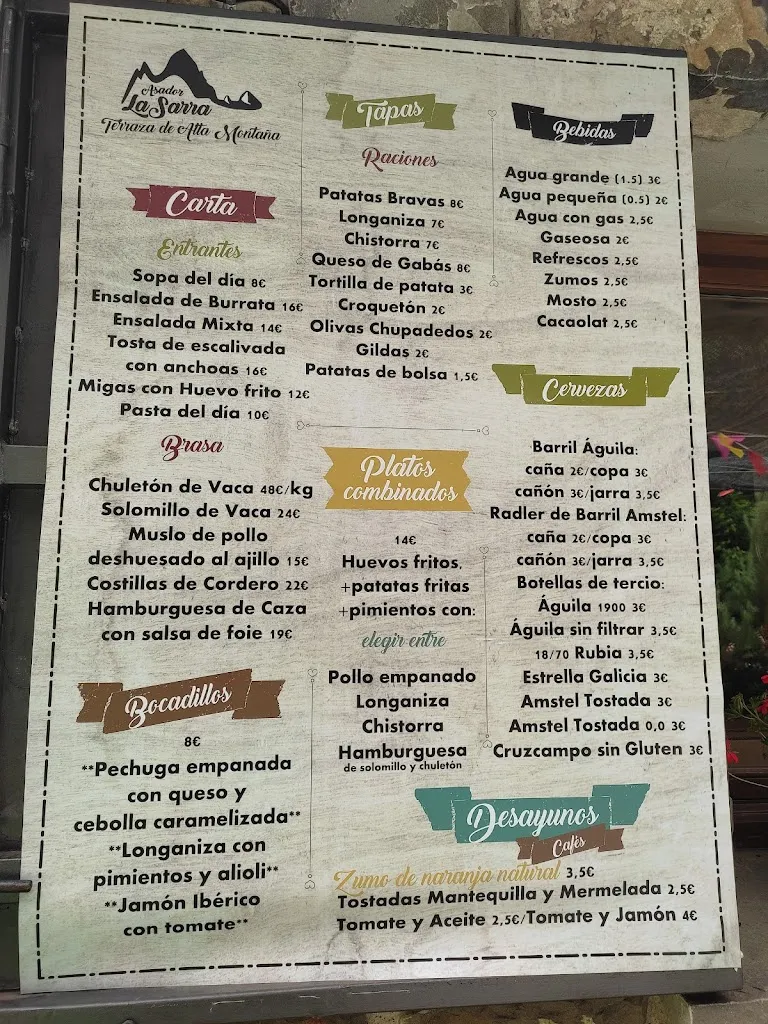 Asador
La Sarra
Terraza de Alta Montaña
Carta
Entrantes
Sopa del día 8€
Ensalada de Burrata 16€
Ensalada Mixta 14€
Tosta de escalivada
con anchoas 16€
Migas con Huevo frito 12€
Pasta del día 10€
Brasa
Chuletón de Vaca 48€/kg
Solomillo de Vaca 24€
Muslo de pollo
deshuesado al ajillo 15€
Costillas de Cordero 22€
Hamburguesa de Caza
con salsa de foie 19€
Bocadillos
8€
**Pechuga empanada
con queso y
cebolla caramelizada**
**Longaniza con
pimientos y alioli**
**Jamón Ibérico
con tomate**
Tapas
Raciones
Patatas Bravas 8€
Longaniza 7€
Chistorra 7€
Queso de Gabás 8€
Tortilla de patata 3€
Croquetón 2€
Olivas Chupadedos 2€
Gildas 2€
Patatas de bolsa 1,5€
Platos
combinados
14€
Huevos fritos,
+patatas fritas
+pimientos con:
elegir entre
Pollo empanado
Longaniza
Chistorra
Hamburguesa
de solomillo y chuletón
Bebidas
Agua grande (1.5) 3€
Agua pequeña (0.5) 2€
Agua con gas 2,5€
Gaseosa 2€
Refrescos 2,5€
Zumos 2,5€
Mosto 2,5€
Cacaolat 2,5€
Cervezas
Barril Águila:
caña 2€/copa 3€
cañón 3€/jarra 3,5€
Radler de Barril Amstel:
caña 2€/copa 3€
cañón 3€/jarra 3,5€
Botellas de tercio:
Águila 1900 3€
Águila sin filtrar 3,5€
18/70 Rubia 3,5€
Estrella Galicia 3€
Amstel Tostada 3€
Amstel Tostada 0,0 3€
Cruzcampo sin Gluten 3€
Desayunos
Cafés
Zumo de naranja natural 3,5€
Tostadas Mantequilla y Mermelada 2,5€
Tomate y Aceite 2,5€/Tomate y Jamón 4€